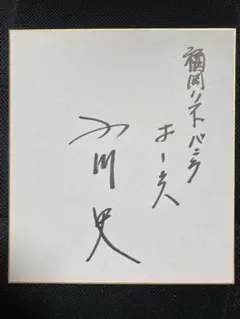 福岡ソフトバンク
ホークス
小川 史